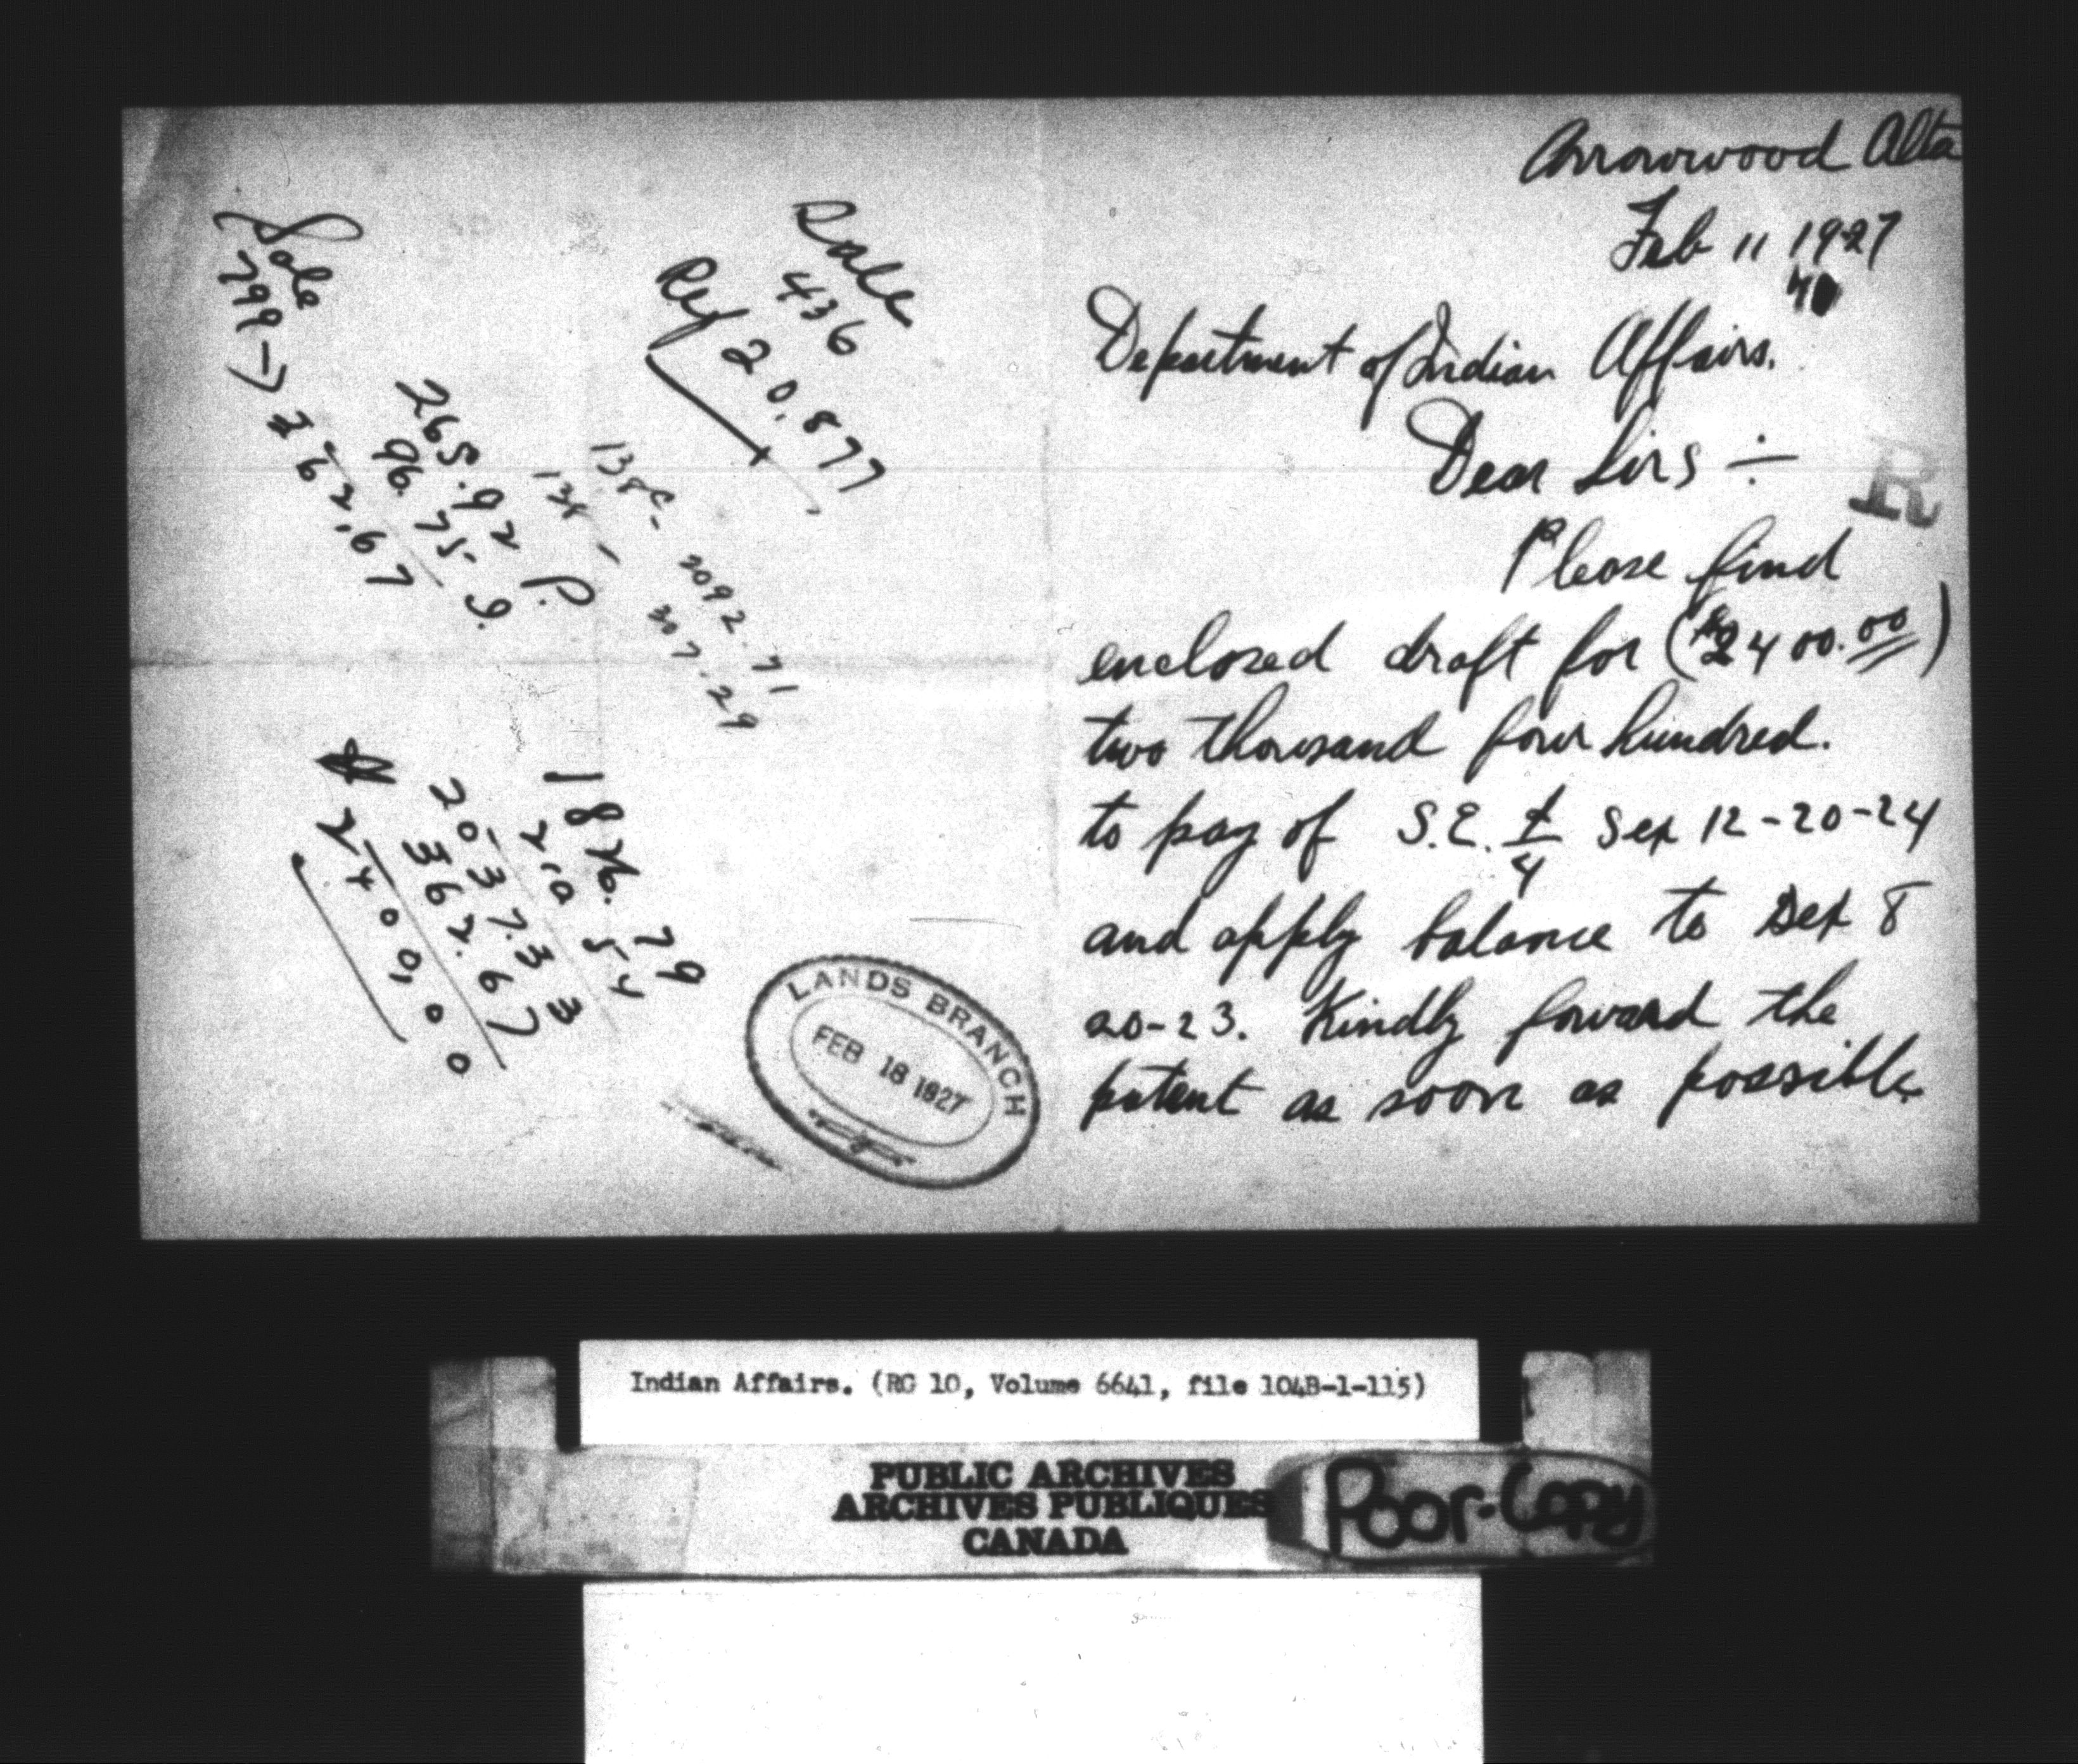 Arrowwood Alta
Feb 11 1927
Department of Indian Affairs.
Dear Sirs ÷
R
Please find
enclosed draft for ($2400.00)
two thousand four hundred.
to pay of S.E. 1/4 Sex 12-20-24
and apply balance to Sex 8
20-23. Kindly foward the
patent as soon as possible
Sale
436
Ref 20,877
Sale
799 → 362.67
265.92 P.
96.75 I.
138
2092.71
307.29
1826.79
210 54
2037.33
362.67
2400.00
LANDS BRANCH
FEB 18 1927
Indian Affairs. (RG 10, Volume 6641, file 104B-1-115)
PUBLIC ARCHIVES
ARCHIVES PUBLIQUES
CANADA
Poor-Copy